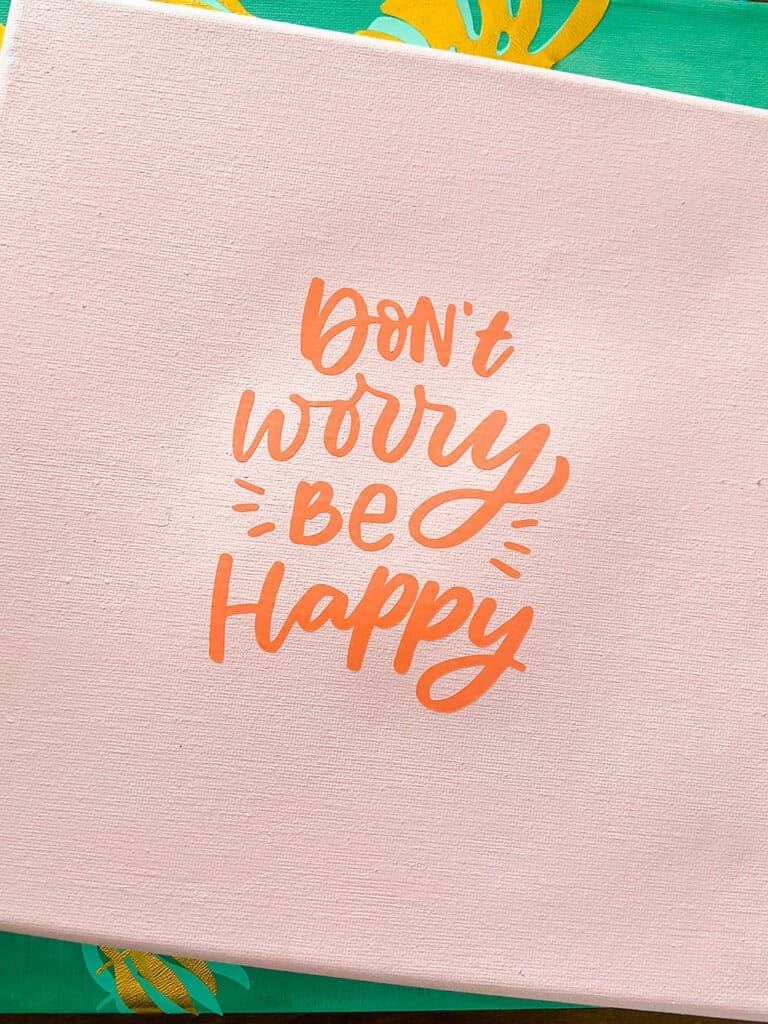 Don't
worry
Be
Happy